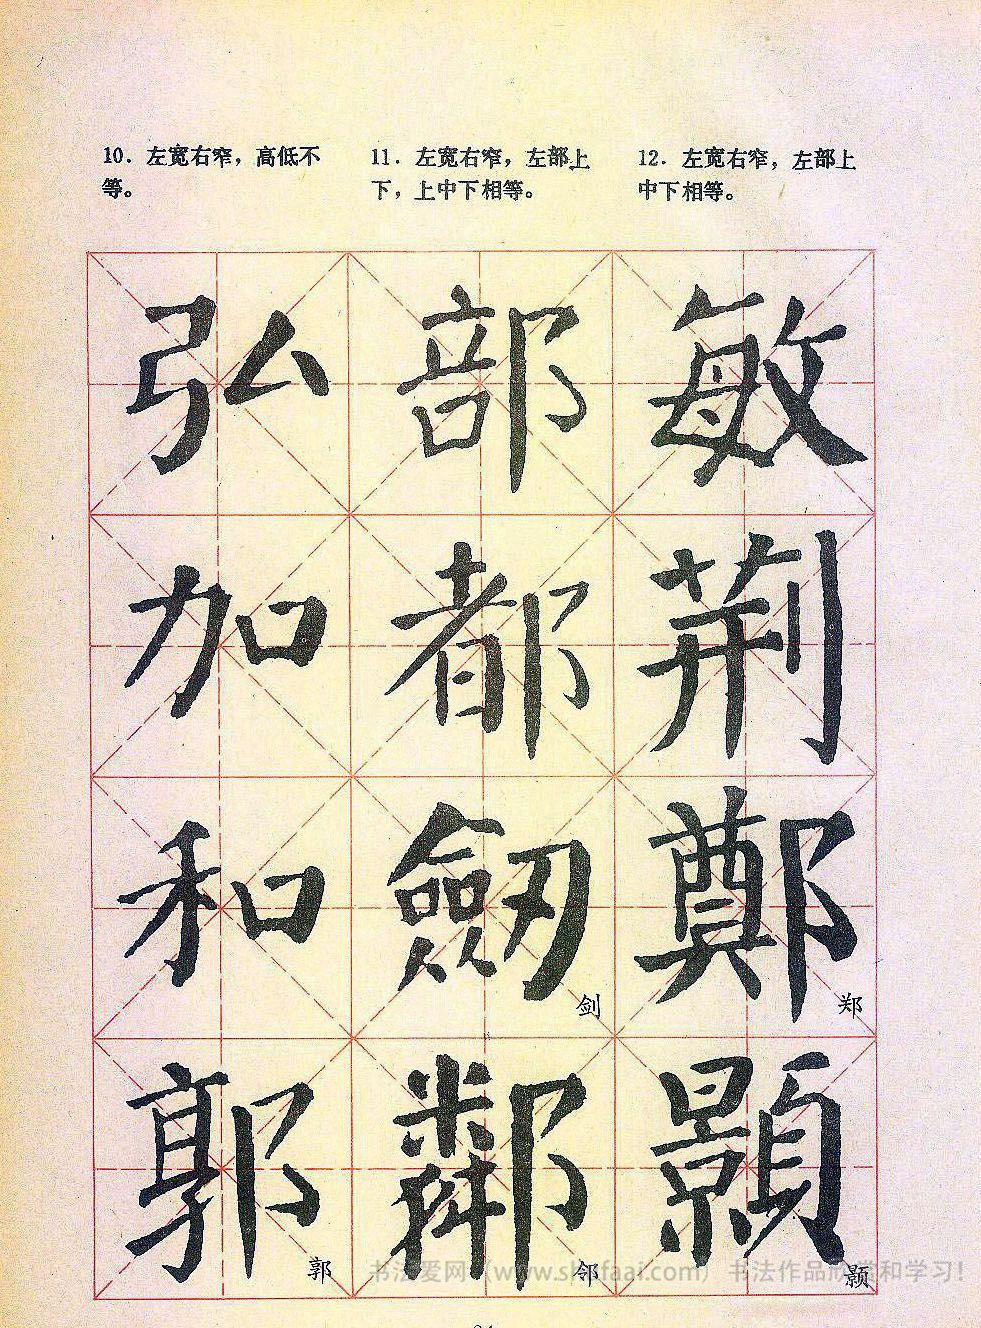 10. 左宽右窄，高低不
等。
11. 左宽右窄，左部上
下，上中下相等。
12. 左宽右窄，左部上
中下相等。
弘 部 敏
加 都 荆
和 劒 鄭
剑 郑
郭 鄰 顥
郭 邻 颢
书法爱网（www.shufaai.com）书法作品欣赏和学习！